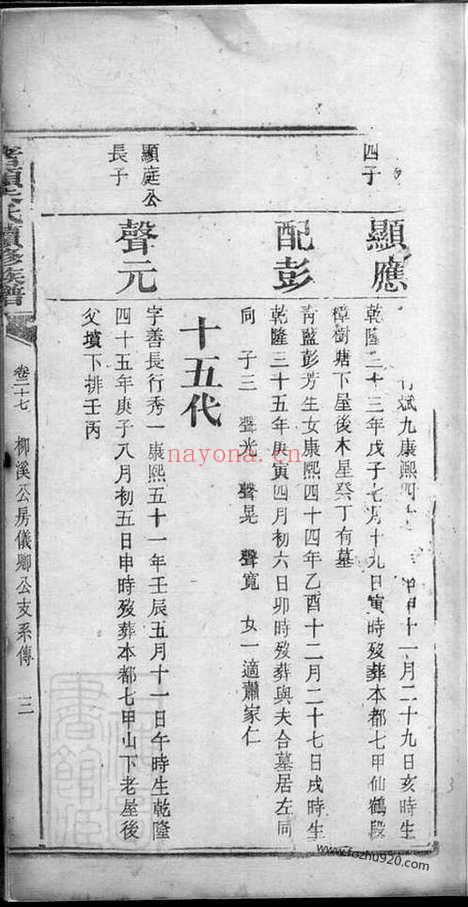 四子
顯應
斌九康熙四 十一月二十九日亥時生
乾隆三十三年戊子七月十九日寅時歿葬本都七甲仙鶴段
樟樹塘下屋後木星癸丁有墓
配彭
青藍彭芳生女康熙四十四年乙酉十二月二十七日戌時生
乾隆三十五年庚寅四月初六日卯時歿葬與夫合墓居左同
同 子三 聲光 聲晃 聲寬 女一適蕭家仁
十五代
顯庭公
長子
聲元
字善長行秀一康熙五十一年壬辰五月十一日午時生乾隆
四十五年庚子八月初五日申時歿葬本都七甲山下老屋後
父墳下排壬丙
氏續修族譜
卷二十七 柳溪公房儀卿公支系傳 三
nayona.cn
www.fozhu920.com